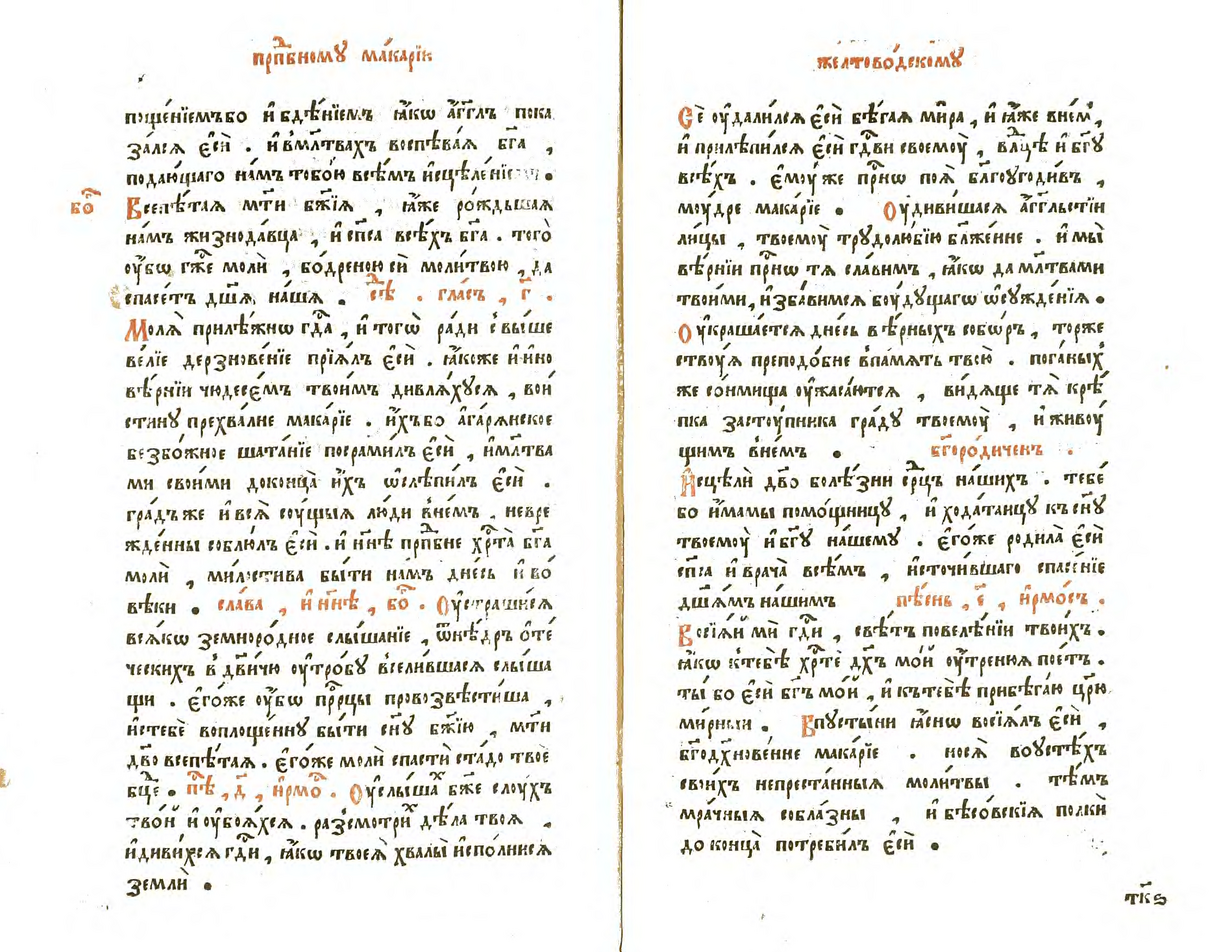 прпⷣбному мака́рїю
пощенїемъбо и҆бдѣ́нїемъ ꙗ҆́кѡ а҆́гг҃лъ пока
за́лсѧ є҆сѝ . и҆вмл҃твахъ воспѣва́ѧ бг҃а ,
подаю́щаго на́мъ тобо́ю всѣ́мъ и҆сцѣле́нїе .
бо҃
Всепѣ́таѧ мт҃и бж҃їѧ , ꙗ҆́же ро́ждьшаѧ
на́мъ жизнода́вца , и҆сп҃са всѣ́хъ бг҃а . того̀
ᲂу҆́бѡ гж҃е молѝ , бо́дреною сѝ моли́твою , да
спасе́тъ дш҃ѧ на́шѧ . сѣⷣ . гла́съ , г҃ .
Молѧ̀ прилѣ́жнѡ гдⷭ҇а , и҆ тогѡ̀ ра́ди свы́ше
ве́лїе дерзнове́нїе прїѧ́лъ є҆сѝ . ꙗ҆́коже и҆и҆но
вѣ́рнїи чюдесе́мъ твои́мъ дивлѧ́хусѧ , вои́
стину прехва́лне мака́рїе . и҆́хъбо а҆гарѧ́нское
безбо́жное шата́нїе посрами́лъ є҆сѝ , и҆мл҃тва
ми свои́ми доконца̀ и҆́хъ ѡ҆слѣпи́лъ є҆сѝ .
гра́дъже и҆всѧ̀ сꙋ́щыѧ лю́ди вне́мъ . невре
жде́нны соблю́лъ є҆сѝ . и҆ нн҃ѣ прпⷣбне хрⷭ҇та̀ бг҃а
молѝ , ми́лостива бы́ти на́мъ дне́сь и҆во
вѣ́ки . сла́ва , и҆ нн҃ѣ , бо҃ . Оу҆страши́сѧ
всѧ́кѡ земноро́дное слы́шанїе , ѿнѣ́дръ ѻ҆те́
ческихъ в̾дв҃и́чю ᲂу҆тро́бу всели́вшасѧ слы́ша
щи . є҆го́же ᲂу҆́бѡ прⷪ҇рцы провозвѣсти́ша ,
и҆стебѐ воплоще́нну бы́ти сн҃у бж҃їю , мт҃и
дв҃о всепѣ́таѧ . є҆го́же молѝ спастѝ ста́до твоѐ
бц҃е . пѣⷭ҇ , д҃ , і҆рмоⷭ҇ . Оу҆слы́шаⷯ бж҃е слꙋ́хъ
тво́й и҆ᲂу҆боѧ́хсѧ . разсмотри́ⷯ дѣла̀ твоѧ̀ ,
и҆диви́хсѧ гдⷭ҇и , ꙗ҆́кѡ твоеѧ̀ хвалы̀ и҆спо́лнисѧ
землѝ .
желтово́дскому
Сѐ ᲂу҆дали́лсѧ є҆сѝ бѣ́гаѧ ми́ра , и҆ ꙗ҆́же вне́мъ ,
и҆ прилѣпи́лсѧ є҆сѝ гдⷭ҇ви своемꙋ̀ , влⷣцѣ и҆ бг҃у
всѣ́хъ . є҆мꙋ́же прⷭ҇нѡ поѧ̀ бл҃гоугоди́въ ,
мꙋ́дре мака́рїе . Оу҆диви́шасѧ а҆́гг҃льстїи
ли́цы , твоемꙋ̀ трудолю́бїю бл҃же́нне . и҆ мы̀
вѣ́рнїи прⷭ҇нѡ тѧ сла́вимъ , ꙗ҆́кѡ да мл҃твами
твои́ми , и҆зба́вимсѧ бꙋ́дꙋщагѡ ѡ҆сужде́нїѧ .
Оу҆краша́етсѧ дне́сь вѣ́рныхъ собѡ́ръ , торже
ству́ѧ преподо́бне впа́мѧть твою̀ . пога́ныхъ
же со́нмища ᲂу҆жаса́ютсѧ , ви́дѧще тѧ̀ крѣ́
пка засту́пника гра́ду твоемꙋ̀ , и҆ живꙋ́
щимъ вне́мъ . бг҃оро́диченъ .
И҆сцѣлѝ дв҃о болѣ́зни срⷣцъ на́шихъ . тебе́
бо и҆́мамы помо́щницу , и҆ хода́таицу къ сн҃у
твоемꙋ̀ и҆ бг҃у на́шему . є҆го́же родила̀ є҆сѝ
сп҃са и҆ врача̀ всѣ́мъ , и҆сточи́вшаго спасе́нїе
дш҃а́мъ на́шимъ пѣ́снь , є҃ , і҆рмо́съ .
Восїѧ́й ми гдⷭ҇и , свѣ́тъ повелѣ́нїи твои́хъ .
ꙗ҆́кѡ ктебѣ̀ хрⷭ҇тѐ дх҃ъ мо́й ᲂу҆́тренюѧ пое́тъ .
ты́ бо є҆сѝ бг҃ъ мо́й , и҆ къ тебѣ̀ прибѣга́ю цр҃ю
ми́рныи . Впусты́ни ꙗ҆́снѡ восїѧ́лъ є҆сѝ ,
бг҃одх҃нове́нне мака́рїе . носѧ̀ воустѣ́хъ
свои́хъ непреста́нныѧ моли́твы . тѣ́мъ
мра́чныѧ собла́зны , и҆ бѣсо́вскїѧ полкѝ
до конца̀ потреби́лъ є҆сѝ .
тк҃ѕ